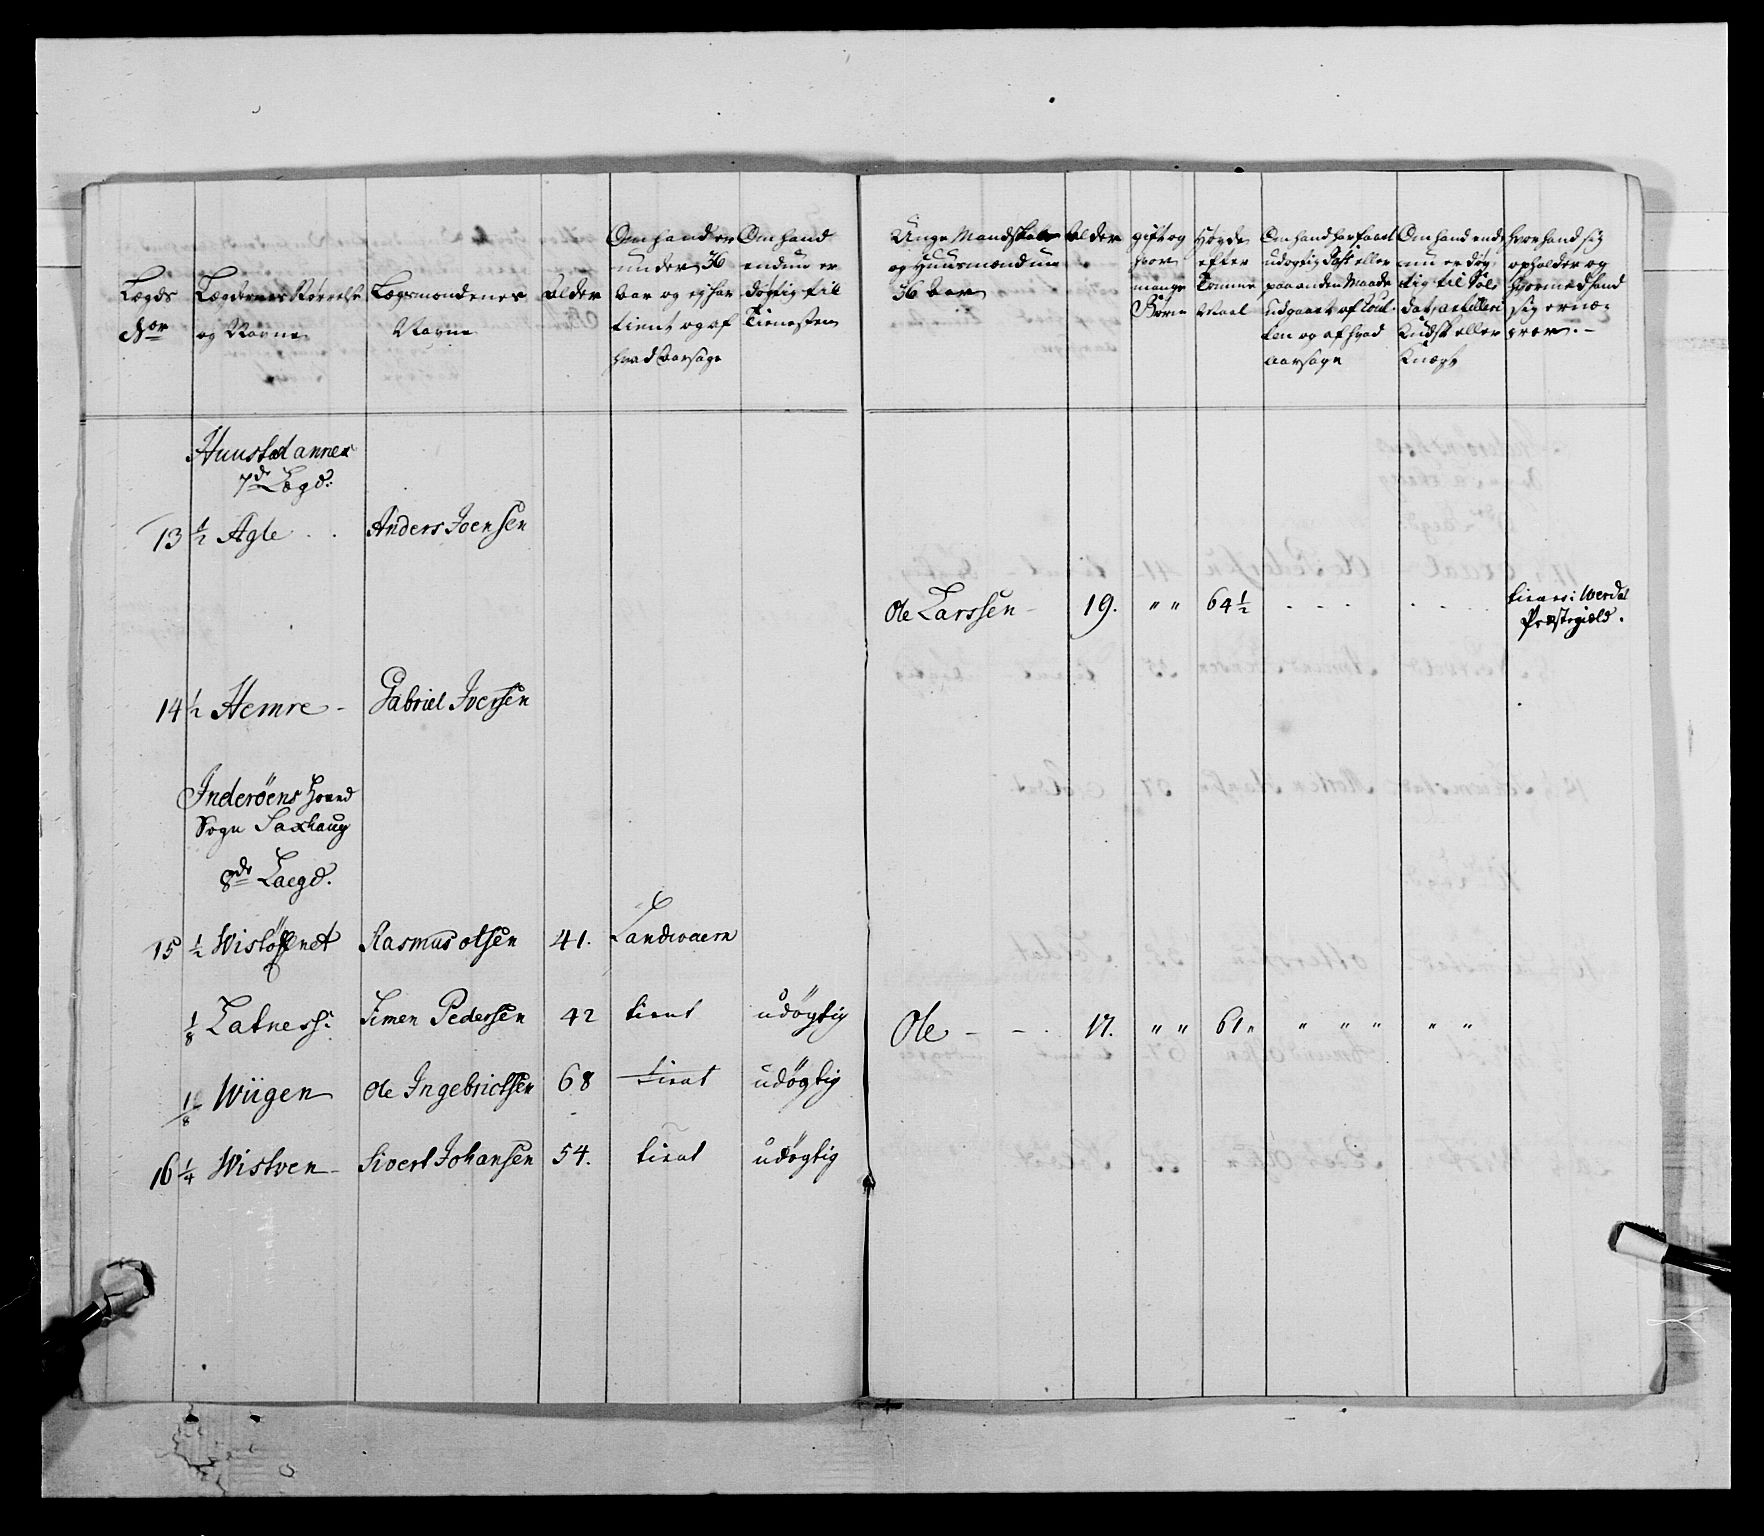 Lægds
Nor
Lægdernes Størrelse
og Navne
Lægsmændenes
Navne
Alder
Om hand er
under 36
Aar og ej har
tient og af
hvad Aarsage
Om hand
endnu er
døgtig til
Tienesten
Unge Mandskab
og Huusmænd un
36 Aar
Alder
gift og
hvor
mange
Børn
Høyde
efter
Tomme
Maal
Om hand har faaet
udøgtig Pass eller
paa anden Maade
udgaaet af Roul-
len og af hvad
Aarsage
Om hand endt
nu er døg-
tig til Sol-
dat, Artilleri
Kudsk eller
Knægt
Hvor hand sig
opholder og
hvormed hand
sig ernæ-
rer.-
Huustad annex
7de Lægd:
13 1/2 Agle . . Anders Joensen
Ole Larssen - 19. " " 64 1/2 - - - - - - tiener i Werdal
Præstegield.
14 1/2 Hemre - Gabriel Iversen
Inderöens Hoved
Sogn Saxhaug
8de Laegd.
15 1/2 Rasmus olsen 41. Landwaern
1/8 Simen Pedersen 42 tient udögtig Ole - - . 17. " " 61 " " " " " "
1/8 Wiigen Ole Ingebrictsen 68 tient udögtig
16 1/4 Wistven - Sivert Johansen 54. tient udögtig